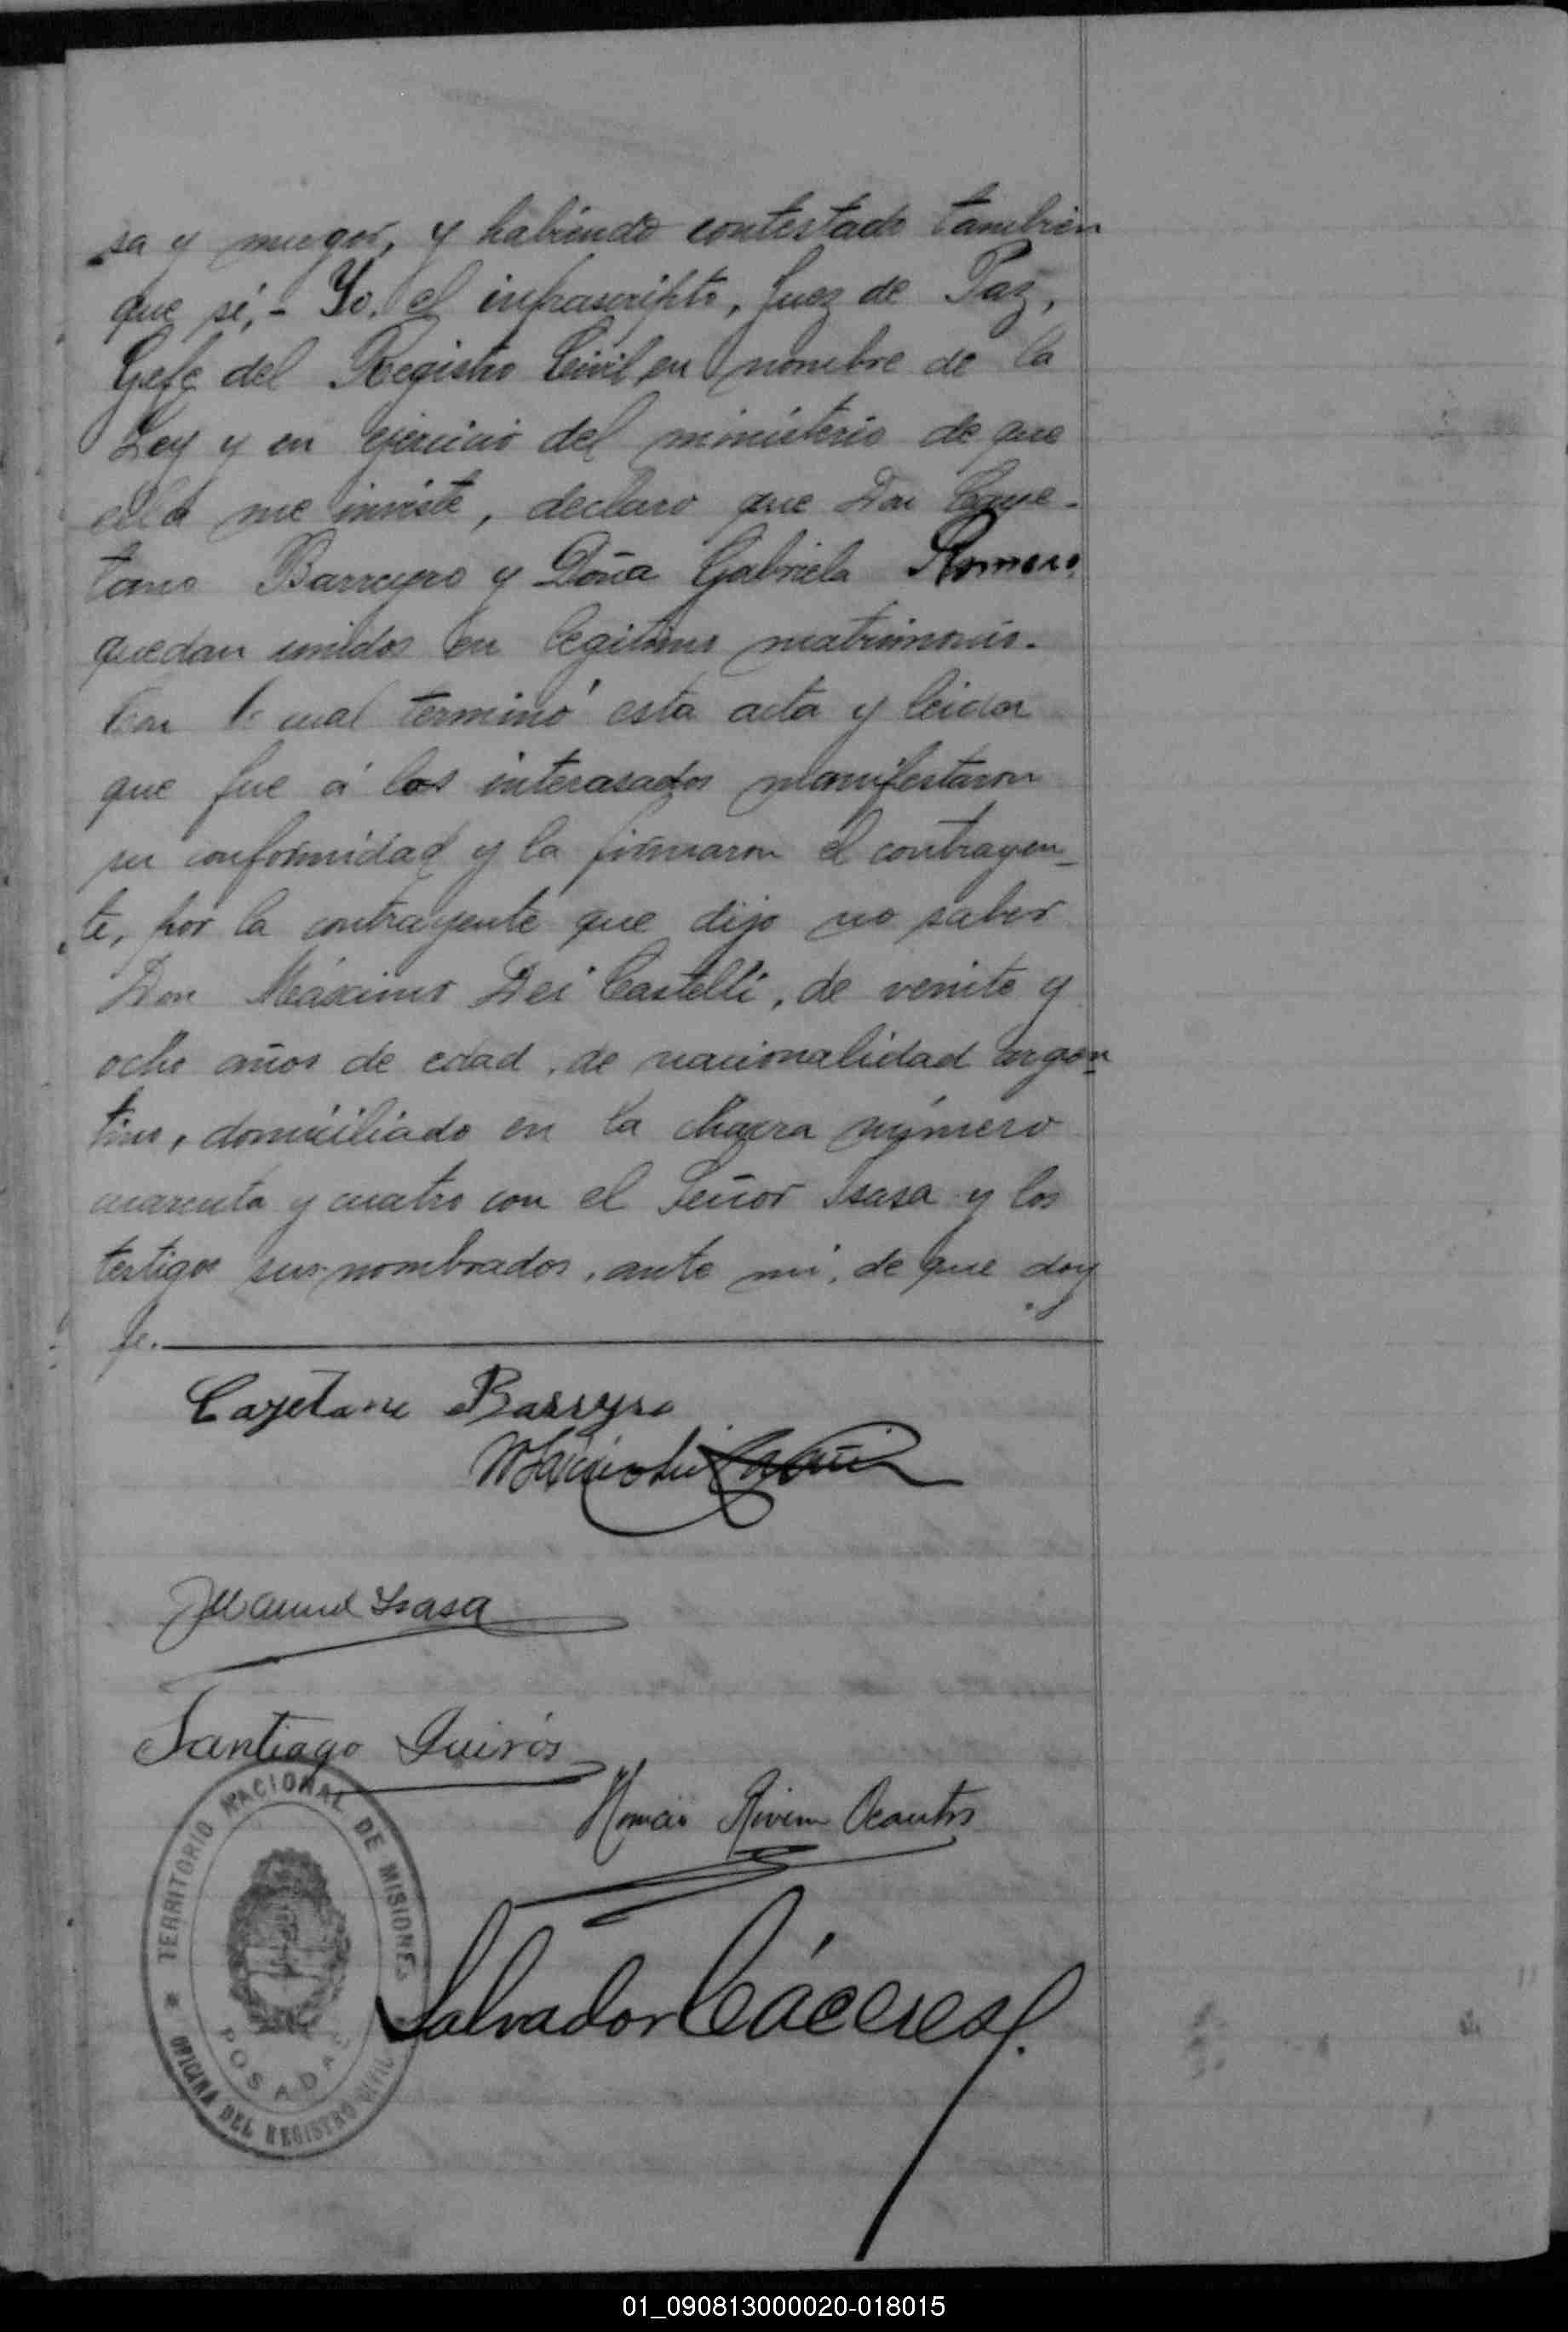 sa y muger, y habiendo contestado tambien
que sí,- Yo, el infrascripto, Juez de Paz,
Gefe del Registro Civil en nombre de la
Ley y en ejercicio del ministerio de que
ella me inviste, declaro que Don Caye-
tano Barreyro y Doña Gabriela Romero
quedan unidos en legitimo matrimonio.
Con lo cual terminó esta acta y leida
que fue á los interasados manifestaron
su conformidad y la firmaron el contrayen-
te, por la contrayente que dijo no saber
Don Máximo Dei Castelli, de veinte y
ocho años de edad, de nacionalidad argen-
tino, domiciliado en la chacra número
cuarenta y cuatro con el Señor Isasa y los
testigos sus nombrados, ante mi, de que doy
fe.
Cayetano Barreyro
Manuel Isasa
Santiago Quirós
Rivera Ocantos
Salvador Cáceres
TERRITORIO NACIONAL DE MISIONES
POSADAS
OFICINA DEL REGISTRO CIVIL
01_090813000020-018015